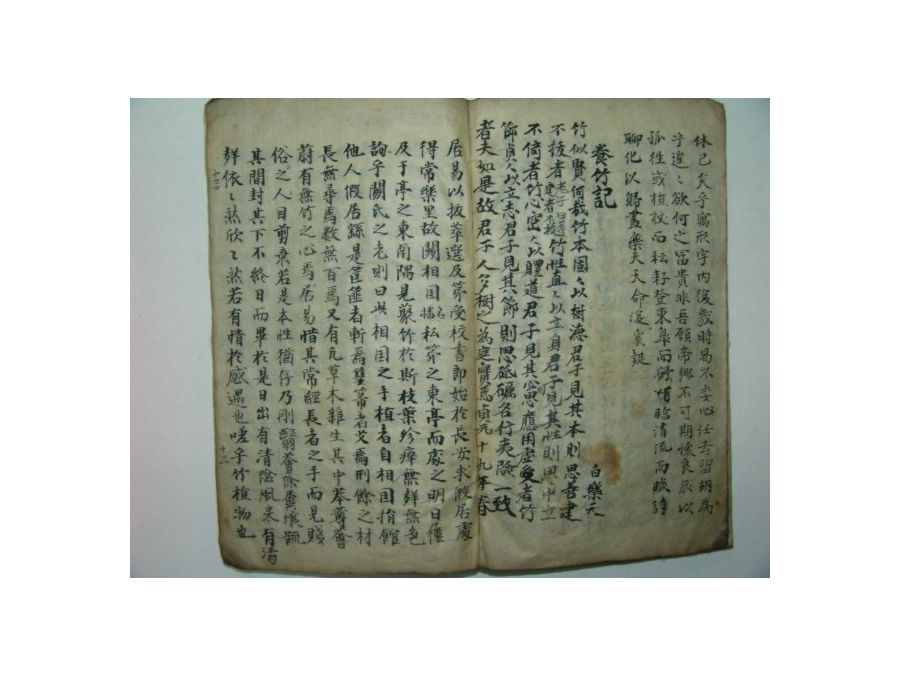 休已矣乎寓形宇內復幾時曷不委心任去留胡為
乎遑〻欲何之富貴非吾願帝鄉不可期懷良辰以
孤往或植杖而耘耔登東皐而舒嘯臨清流而賦詩
聊化以歸盡樂夫天命復奚疑
養竹記
白樂天
竹似賢何哉竹本固〻以樹德君子見其本則思善建
不拔者老子曰善建者不拔竹性直〻以立身君子見其性則思中立
不倚者竹心空〻以體道君子見其心則思應用虛受者竹
節貞〻以立志君子見其節則思砥礪名行夷險一致
者夫如是故君子人多樹之為庭實焉貞元十九年春
居易以拔萃選及第受校書郎始於長安求假居處
得常樂里故關相國名播私第之東亭而處之明日履
及于亭之東南隅見藂竹於斯枝葉殄瘁無聲無色
詢乎關氏之老則曰此相國之手植者自相國捐館
他人假居繇是筐篚者斬焉篲箒者艾焉刑餘之材
長無尋焉數無百焉又有凡草木雜生其中菶蓴薈
蔚有無竹之心焉居易惜其常經長者之手而見賤
俗之人目剪棄若是本性猶存乃刪翳薈除糞壤疏
其間封其下不終日而畢於是日出有清陰風來有清
聲依〻然欣〻然若有情於感遇也嗟乎竹植物也